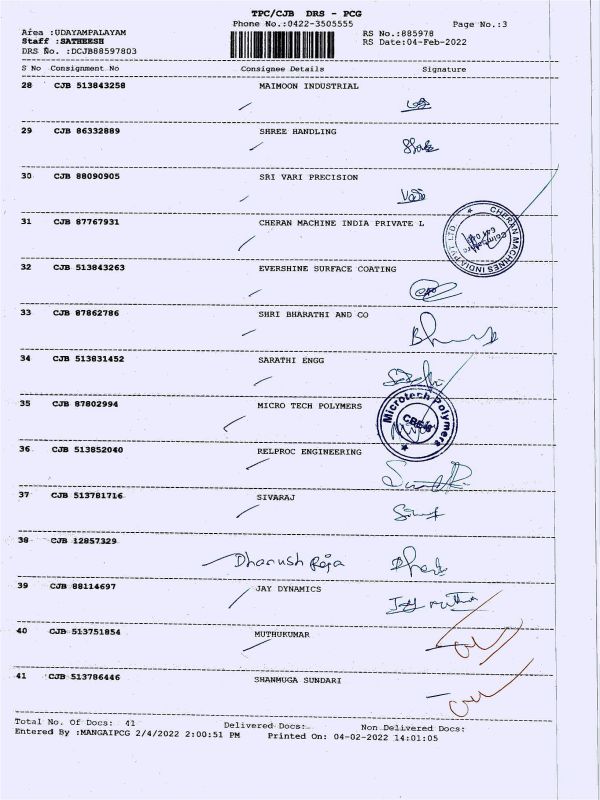 TPC/CJB DRS - PCG
Phone No.:0422-3505555 Page No.:3
Area :UDAYAMPALAYAM RS No.:885978
Staff :SATHEESH RS Date:04-Feb-2022
DRS No. :DCJB88597803
S No Consignment No Consignee Details Signature
28 CJB 513843258 MAIMOON INDUSTRIAL
29 CJB 86332889 SHREE HANDLING
30 CJB 88090905 SRI VARI PRECISION
31 CJB 87767931 CHERAN MACHINE INDIA PRIVATE L
CHERAN MACHINES INDIA PVT LTD
32 CJB 513843263 EVERSHINE SURFACE COATING
33 CJB 87862786 SHRI BHARATHI AND CO
34 CJB 513831452 SARATHI ENGG
35 CJB 87802994 MICRO TECH POLYMERS
Microtech Polymers
36 CJB 513852040 RELPROC ENGINEERING
37 CJB 513781716 SIVARAJ
38 CJB 12857329 Dharush Raja
39 CJB 88114697 JAY DYNAMICS
40 CJB 513751854 MUTHUKUMAR
41 CJB 513786446 SHANMUGA SUNDARI
Total No. Of Docs: 41 Delivered Docs: Non Delivered Docs:
Entered By :MANGAIPCG 2/4/2022 2:00:51 PM Printed On: 04-02-2022 14:01:05